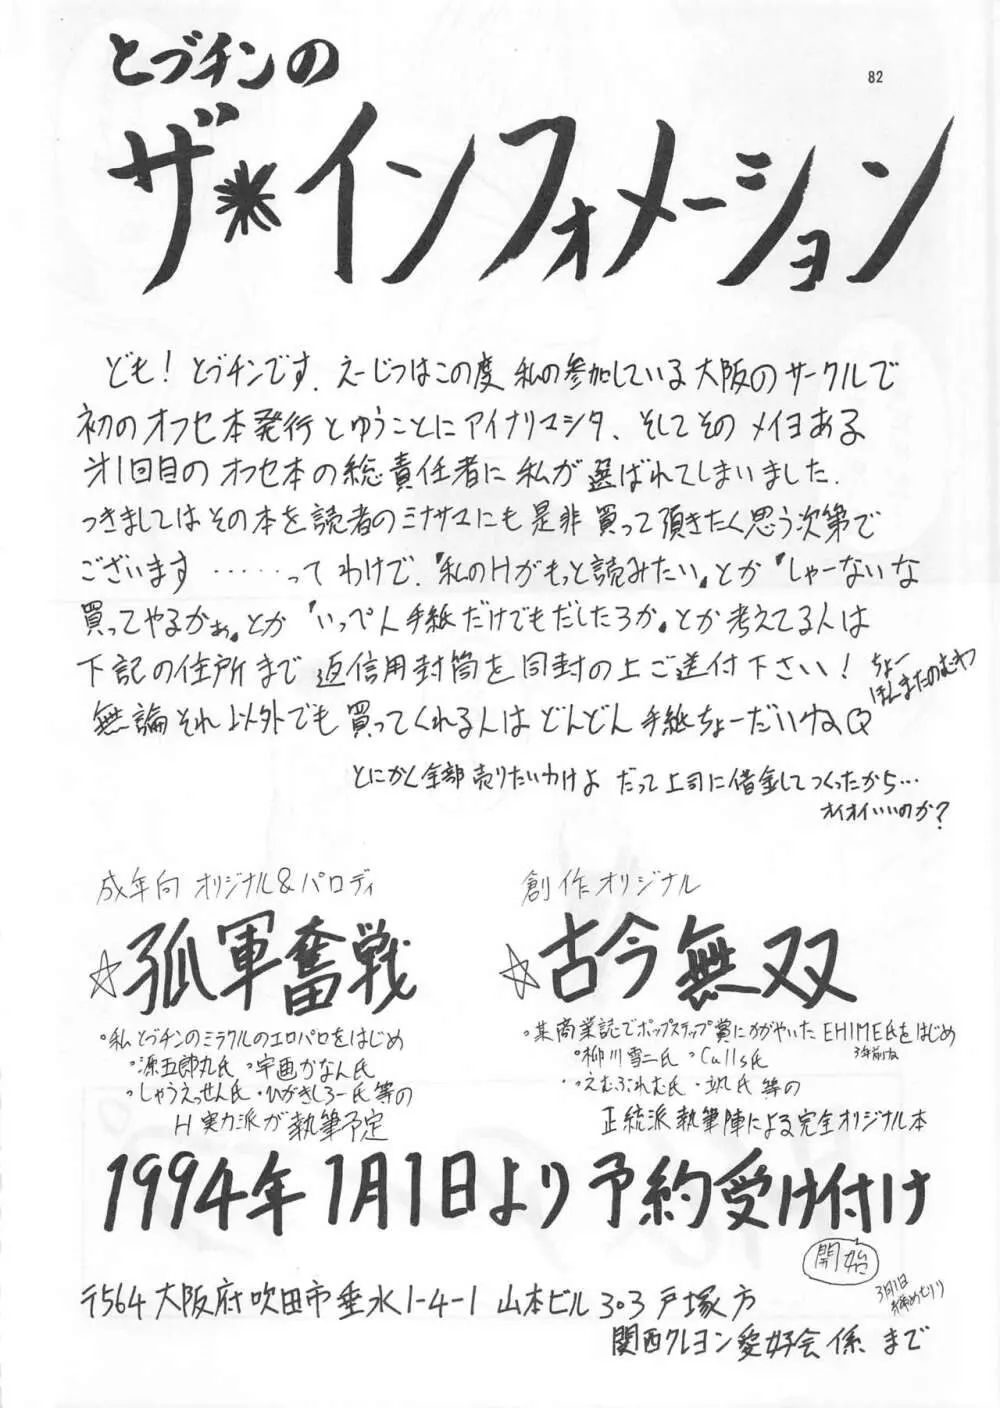 82
とづチンの
ザ・インフォメーション
ども！とづチンです．えーじつはこの度 私の参加している大阪のサークルで
初のオフセ本発行とゆうことにアイナリマシタ、そしてそのメイヨある
㐧1回目のオフセ本の総責任者に私が選ばれてしまいました．
つきましてはその本を読者のミナサマにも是非買って頂きたく思う次第で
ございます……ってわけで．『私のHがもっと読みたい』とか『しゃーないな
買ってやるかぁ』とか『いっぺん手紙だけでもだしたろか』とか考えてる人は
下記の住所まで返信用封筒を同封の上ご送付下さい！ちょー
ほんまたのむわ
無論それ以外でも買ってくれる人はどんどん手紙ちょーだいね
とにかく全部売りたいわけよ だって上司に借金してつくったから…
オイオイいいのか？
成年向 オリジナル&パロディ
☆孤軍奮戦
・私とづチンのミラクルのエロパロをはじめ
・源五郎丸氏 ・宇画かなん氏
・しゃうえっせん氏・ひがきしろー氏等の
H実力派が執筆予定
創作オリジナル
☆古今無双
・某商業誌でホップステップ賞にかがやいたEHIME氏をはじめ
3年前ね
・柳川雪二氏 ・Culls氏
・えむぶれむ氏 ・氏等の
正統派執筆陣による完全オリジナル本
1994年1月1日より予約受け付け
開始
3月1日
締めきり
〒564 大阪府吹田市垂水1-4-1 山本ビル303戸塚方
関西クレヨン愛好会係まで